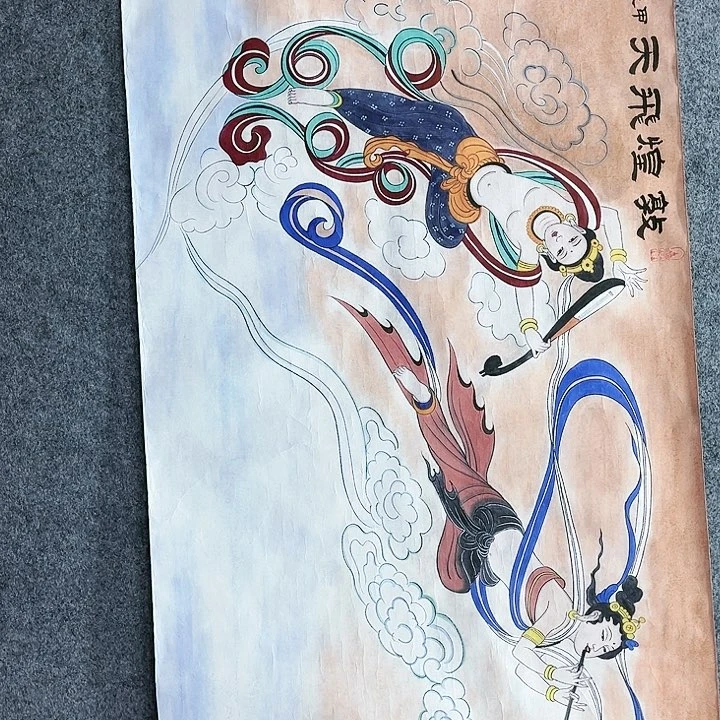 敦煌飛天
甲